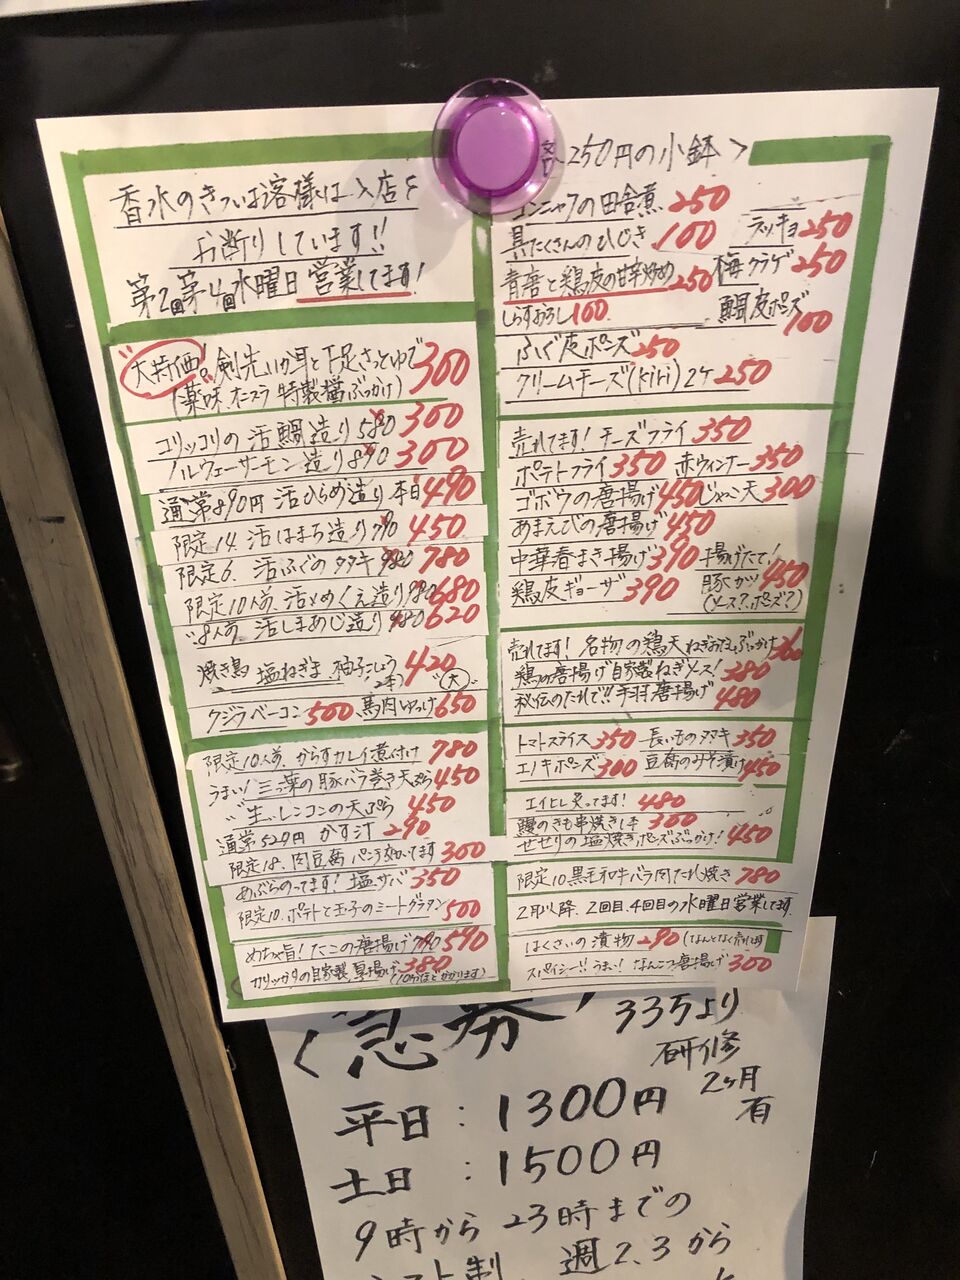 香水のきつい客様は入店を
お断りしています!!
第2回第4回水曜日営業してます!
大特価!剣先いか耳と下足さっとゆで 300
(薬味、オニスラ 特製醤ぶっかけ)
コリッコリの活鯛造り 580 300
ノルウェーサーモン造り 890 300
通常890円 活ひらめ造り 本日490
限定14. 活はまち造り 790 450
限定6. 活ふぐのタタキ 980 780
限定10人前、活〆めくえ造り 980 680
〃8人前 活しまあじ造り 980 620
焼き鳥 塩ねぎま 柚子こしょう 2本 420 (大)
クジラベーコン 500 馬肉ゆっけ 650
限定10人前、からすカレイ煮付け 780
うまい!三つ葉の豚バラ巻き天ぷら 450
〝生〟レンコンの天ぷら 450
通常529円 かす汁 290
限定18、肉豆腐 パンチ効いてます 300
あぶらのってます!塩サバ 350
限定10.ポテトと玉子のミートグラタン 500
めちゃ旨!たこの唐揚げ 790 590
カリッカリの自家製厚揚げ 380 (10分ほどかかります)
250円の小鉢 >
コンニャクの田舎煮 250
具たくさんのひじき 100 ラッキョ 250
青唐と鶏皮の甘辛炒め 250 梅クラゲ 250
しらすおろし 100 鯛皮ポンズ 100
ふぐ皮ポンズ 250
クリームチーズ(kiri)2ケ 250
売れてます!チーズフライ 350
ポテトフライ 350 赤ウィンナー 350
ゴボウの唐揚げ 450 じゃこ天 300
あまえびの唐揚げ 450
中華春まき揚げ 390 揚げたて!
鶏皮ギョーザ 390 豚カツ 450
(ソース?ポンズ?)
売れてます!名物の鶏天ねぎおろしぶっかけ 360
鶏の唐揚げ自家製ねぎソース! 380
秘伝のたれで!!手羽唐揚げ 480
トマトスライス 350 長いものタタキ 350
エノキポンズ 300 豆腐のみそ漬け 450
エイヒレ炙ってます! 480
鰻のきも串焼き1本 300
せせりの塩焼きポンズぶっかけ! 450
限定10黒毛和牛バラ肉たれ焼き 780
2月以降、2回目、4回目の水曜日営業してます。
はくさいの漬物 290 (なんとなく売れます)
スパイシー!!うまい!なんこつ唐揚げ 300
急募
335より
研修
2ヶ月
有
平日:1300円
土日:1500円
9時から23時までの
週2.3から